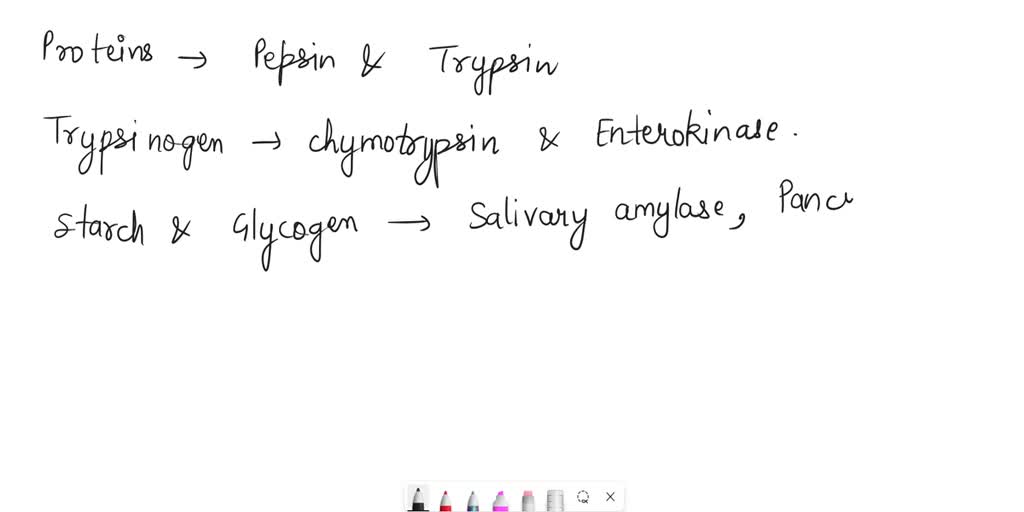 Proteins → Pepsin & Trypsin
Trypsinogen → chymotrypsin & Enterokinase.
Starch & Glycogen → Salivary amylase, Panc